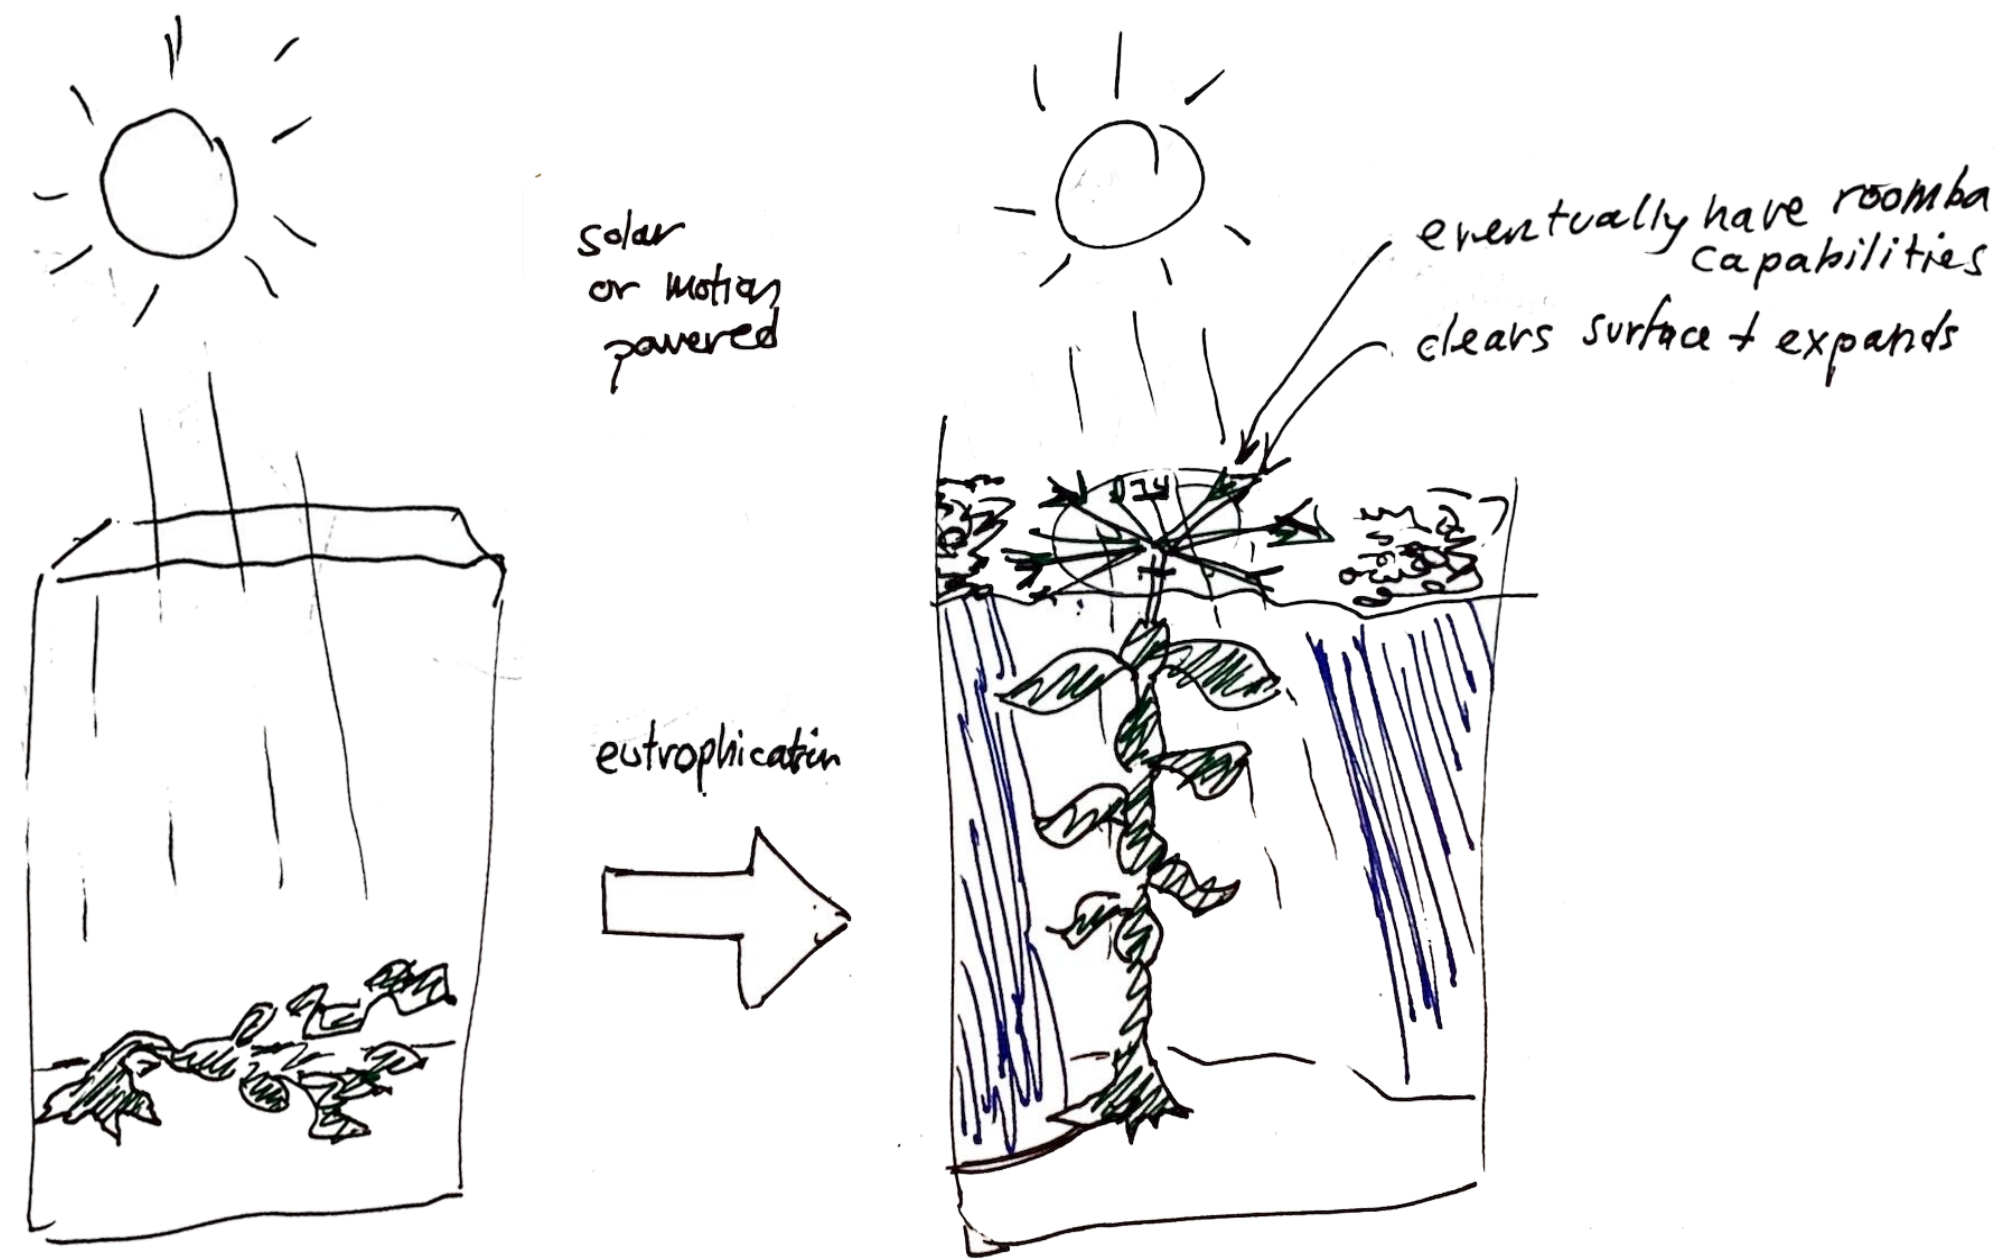 solar
or motion
powered
eventually have roomba
capabilities
clears surface + expands
eutrophication